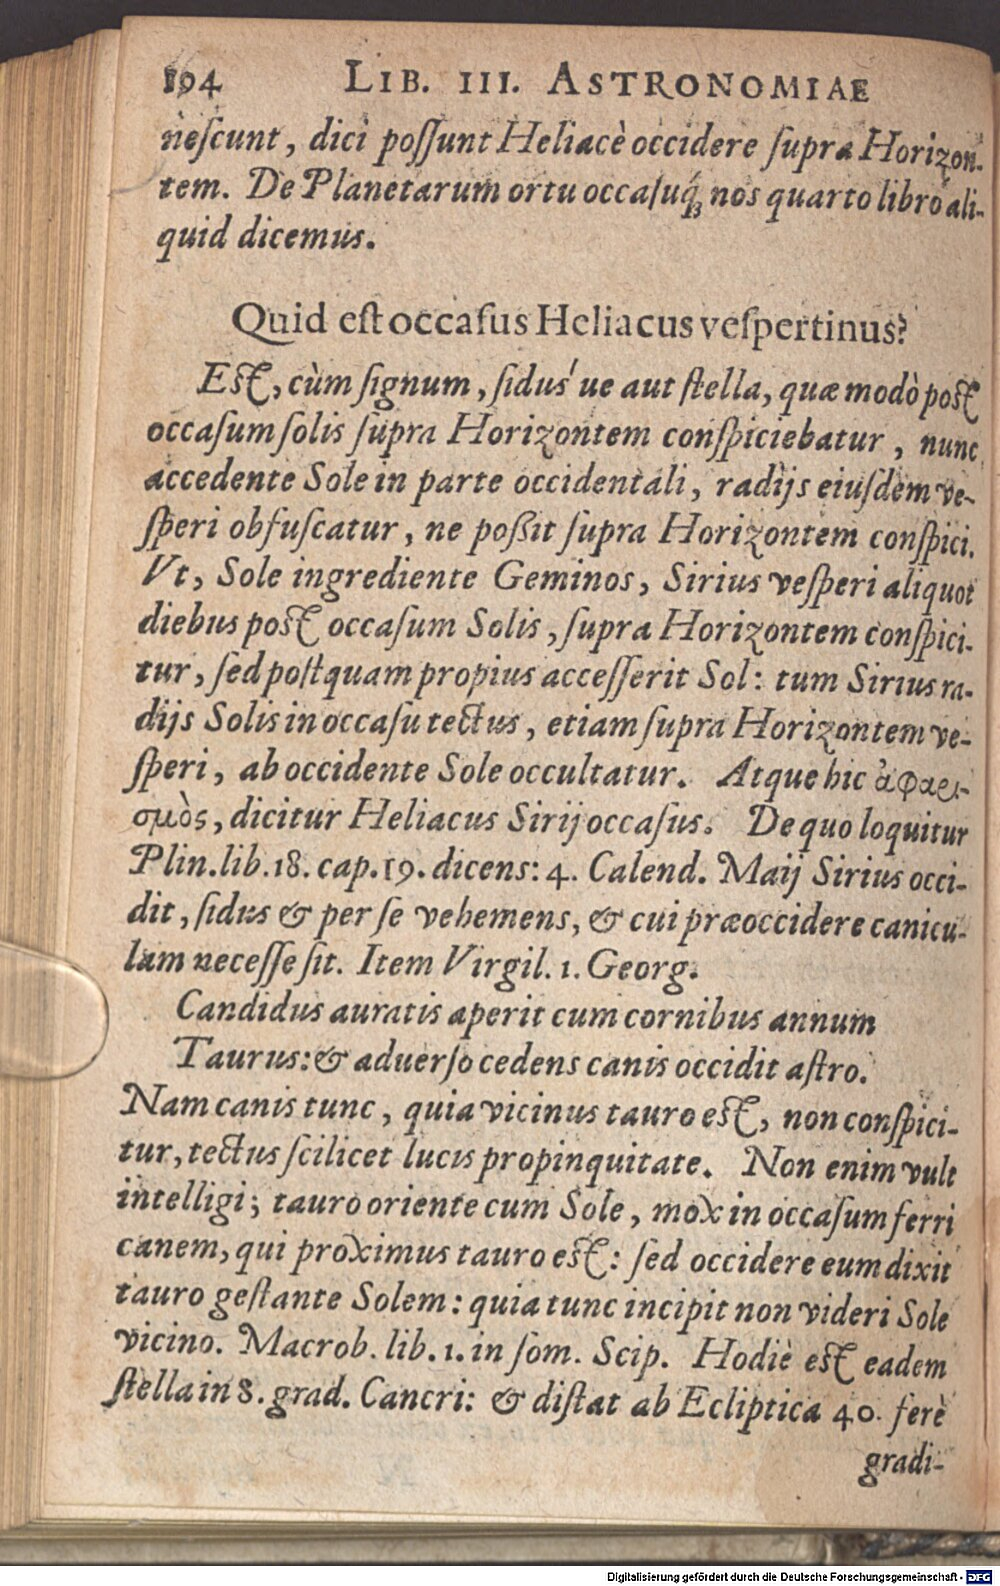 194 LIB. III. ASTRONOMIAE
neſcunt, dici poſſunt Heliacè occidere ſupra Horizon-
tem. De Planetarum ortu occaſuq́ꝫ nos quarto libro ali-
quid dicemus.
Quid eſt occaſus Heliacus veſpertinus?
Eſt, cùm ſignum, ſiduś ue aut ſtella, quæ modò poſt
occaſum ſolis ſupra Horizontem conſpiciebatur, nunc
accedente Sole in parte occidentali, radijs eiuſdem ve-
ſperi obfuſcatur, ne poßit ſupra Horizontem conſpici.
Vt, Sole ingrediente Geminos, Sirius veſperi aliquot
diebus poſt occaſum Solis, ſupra Horizontem conſpici-
tur, ſed poſtquam propius acceſſerit Sol: tum Sirius ra-
dijs Solis in occaſu tectus, etiam ſupra Horizontem ve-
ſperi, ab occidente Sole occultatur. Atque hic ἀφανι-
σμὸς, dicitur Heliacus Sirij occaſus. De quo loquitur
Plin. lib. 18. cap. 19. dicens: 4. Calend. Maij Sirius occi-
dit, ſidus & per ſe vehemens, & cui præoccidere canicu-
lam neceſſe ſit. Item Virgil. 1. Georg.
Candidus auratis aperit cum cornibus annum
Taurus: & aduerſo cedens canis occidit aſtro.
Nam canis tunc, quia vicinus tauro eſt, non conſpici-
tur, tectus ſcilicet lucis propinquitate. Non enim vult
intelligi; tauro oriente cum Sole, mox in occaſum ferri
canem, qui proximus tauro eſt: ſed occidere eum dixit
tauro geſtante Solem: quia tunc incipit non videri Sole
vicino. Macrob. lib. 1. in ſom. Scip. Hodiè eſt eadem
ſtella in 8. grad. Cancri: & diſtat ab Ecliptica 40. ferè
gradi-
Digitalisierung gefördert durch die Deutsche Forschungsgemeinschaft - DFG